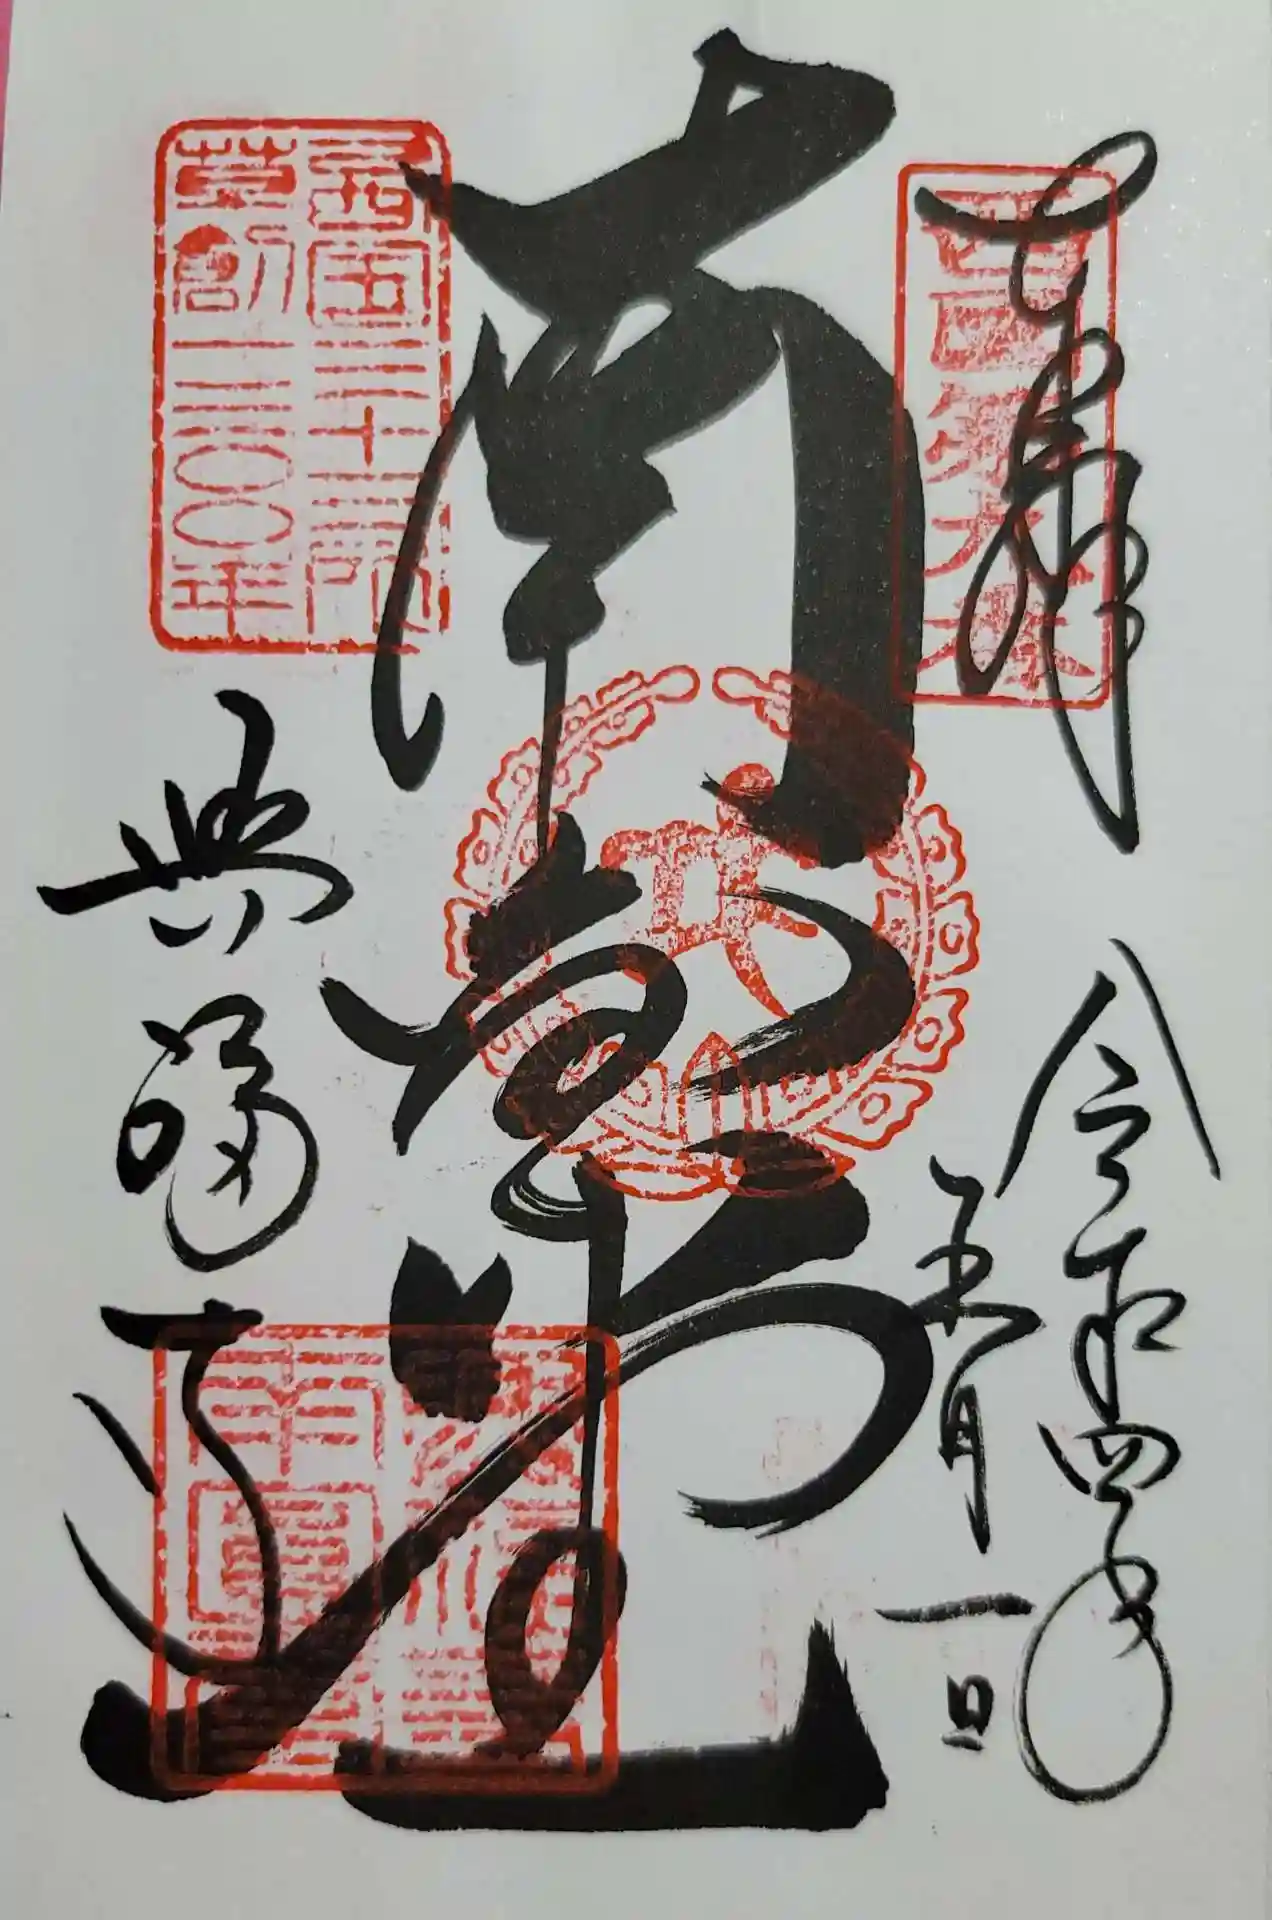 奉拝
令和四年
五月一日
西国第九番
南円堂
西国三十三所
草創一三〇〇年
興福寺
興福寺
南円堂